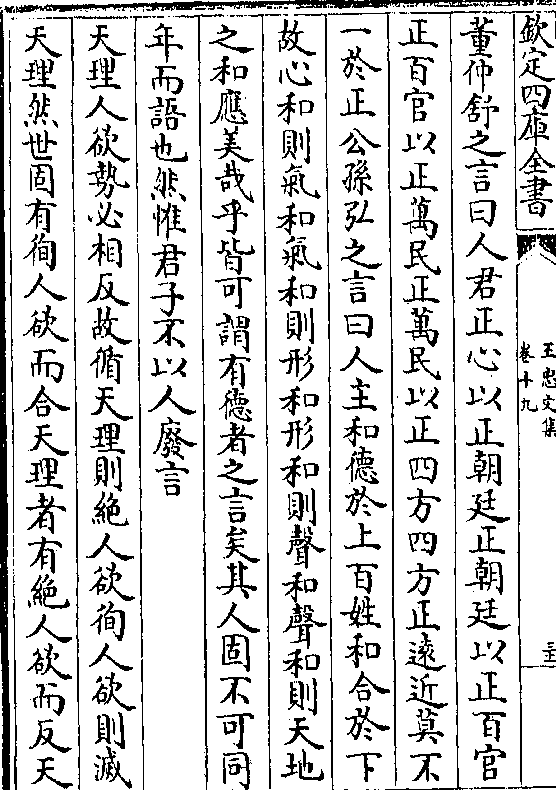 欽定四庫全書
王忠文集
卷十九
董仲舒之言曰人君正心以正朝廷正朝廷以正百官
正百官以正萬民正萬民以正四方四方正遠近莫不
一於正公孫弘之言曰人主和德於上百姓和合於下
故心和則氣和氣和則形和形和則聲和聲和則天地
之和應美哉乎皆可謂有德者之言矣其人固不可同
年而語也然惟君子不以人廢言
天理人欲勢必相反故循天理則絶人欲徇人欲則滅
天理然世固有徇人欲而合天理者有絶人欲而反天